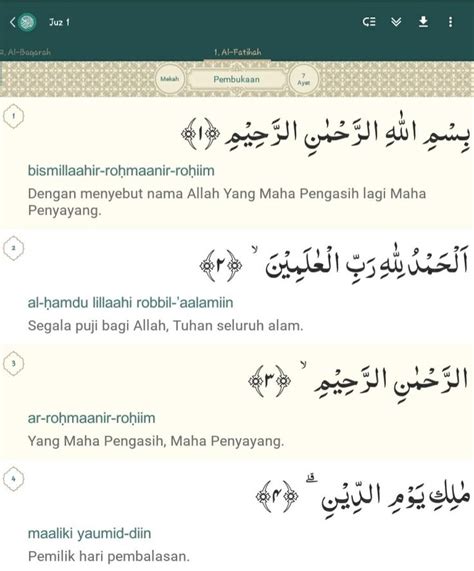 Juz 1
2. Al-Baqarah
1. Al-Fatihah
Mekah
Pembukaan
7
Ayat
1
بِسْمِ اللّٰهِ الرَّحْمٰنِ الرَّحِيْمِ ﴿١﴾
bismillaahir-roḥmaanir-roḥiim
Dengan menyebut nama Allah Yang Maha Pengasih lagi Maha
Penyayang.
2
اَلْحَمْدُ لِلّٰهِ رَبِّ الْعٰلَمِيْنَ ۙ ﴿٢﴾
al-ḥamdu lillaahi robbil-'aalamiin
Segala puji bagi Allah, Tuhan seluruh alam.
3
الرَّحْمٰنِ الرَّحِيْمِ ۙ ﴿٣﴾
ar-roḥmaanir-roḥiim
Yang Maha Pengasih, Maha Penyayang.
4
مٰلِكِ يَوْمِ الدِّيْنِ ۗ ﴿٤﴾
maaliki yaumid-diin
Pemilik hari pembalasan.